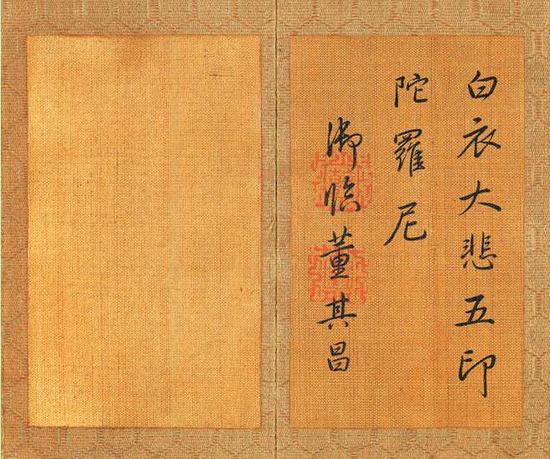 白衣大悲五印
陀羅尼
御臨董其昌